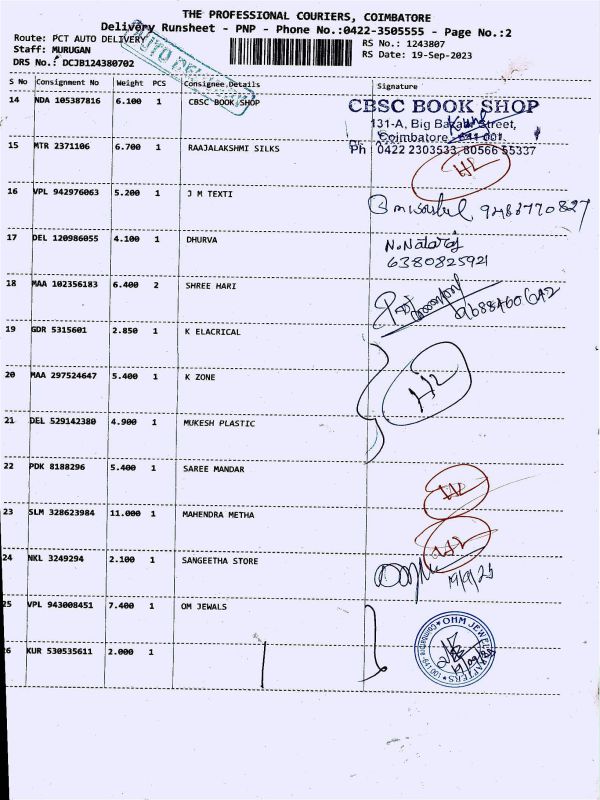 THE PROFESSIONAL COURIERS, COIMBATORE
Delivery Runsheet - PNP - Phone No.:0422-3505555 - Page No.:2
Route: PCT AUTO DELIVERY
RS No.: 1243807
Staff: MURUGAN
RS Date: 19-Sep-2023
DRS No.: DCJB124380702
AUTO DELIVERY
S No Consignment No Weight PCS Consignee Details Signature
14 NDA 105387816 6.100 1 CBSC BOOK SHOP
CBSC BOOK SHOP
131-A, Big Bazaar Street,
Coimbatore - 641 001.
Ph : 0422 2303533, 80566 55337
15 MTR 2371106 6.700 1 RAAJALAKSHMI SILKS
HL
16 VPL 942976063 5.200 1 J M TEXTI
17 DEL 120986055 4.100 1 DHURVA
N.Nataraj
6380825921
18 MAA 102356183 6.400 2 SHREE HARI
19 GDR 5315601 2.850 1 K ELACRICAL
20 MAA 297524647 5.400 1 K ZONE
HL
21 DEL 529142380 4.900 1 MUKESH PLASTIC
22 PDK 8188296 5.400 1 SAREE MANDAR
HL
23 SLM 328623984 11.000 1 MAHENDRA METHA
HL
24 NKL 3249294 2.100 1 SANGEETHA STORE
19/9/23
25 VPL 943008451 7.400 1 OM JEWALS
OHM JEWEL CRAFTERS
26 KUR 530535611 2.000 1